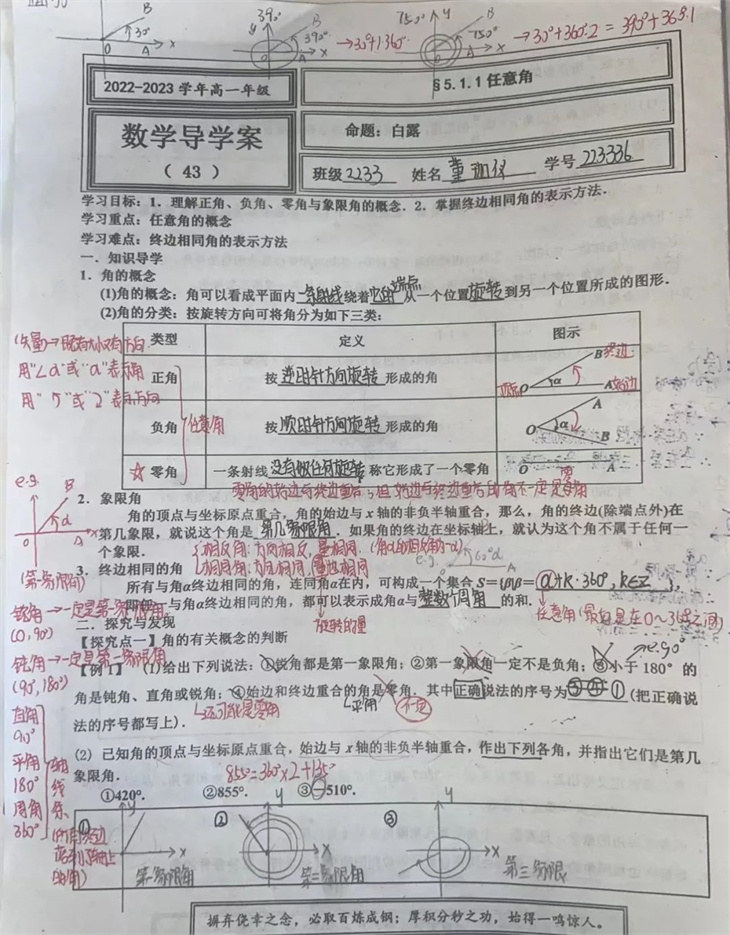 30°
B
O
A
x
390°
y
B
390°
O
A
x
→30°+1·360°
750°
y
B
750°
O
A
x
→30°+360°·2 = 390°+360°·1
2022-2023 学年高一年级
§5.1.1 任意角
数学导学案
（ 43 ）
命题：白露
班级2233 姓名董 学号223336
学习目标：1．理解正角、负角、零角与象限角的概念．2．掌握终边相同角的表示方法．
学习重点：任意角的概念
学习难点：终边相同角的表示方法
一．知识导学
1．角的概念
(1)角的概念：角可以看成平面内一条射线绕着它的端点从一个位置旋转到另一个位置所成的图形．
(2)角的分类：按旋转方向可将角分为如下三类：
类型 定义 图示
正角 按逆时针方向旋转形成的角
顶点O α B终边 A始边
负角 按顺时针方向旋转形成的角
O α A B
☆零角 一条射线没有做任何旋转称它形成了一个零角
O A
任意角
(矢量)→既有大小又有方向
用"∠α"或"α"表示角
零角的始边与终边重合，但始边与终边重合的角不一定是零角
2．象限角
角的顶点与坐标原点重合，角的始边与 x 轴的非负半轴重合，那么，角的终边(除端点外)在
第几象限，就说这个角是第几象限角．如果角的终边在坐标轴上，就认为这个角不属于任何一
个象限．
e.g.
B
α
O
A
x
(第一象限角)
相反角：方向相反，量相同．(角α的相反角为-α)
相同角：方向相同，量也相同
e.g.
60°
3．终边相同的角
所有与角α终边相同的角，连同角α在内，可构成一个集合 S={β|β=α+k·360°,k∈Z}，
即任一与角α终边相同的角，都可以表示成角α与整数个周角的和．
旋转的量
任意角(最好是在0～360°之间)
锐角→一定是第一象限角
(0,90°)
钝角→一定是第二象限角
(90°,180°)
直角
90°
平角
180°
周角
360°
轴线角
(角的终边
落到坐标轴上
的角)
二．探究与发现
【探究点一】角的有关概念的判断
【例 1】 (1)给出下列说法：①锐角都是第一象限角；②第一象限角一定不是负角；③小于 180° 的
角是钝角、直角或锐角；④始边和终边重合的角是零角．其中正确说法的序号为①(把正确说
法的序号都写上)．
e.g.90°
还可能是零角
平角
不一定
(2) 已知角的顶点与坐标原点重合，始边与 x 轴的非负半轴重合，作出下列各角，并指出它们是第几
象限角．
855°=360°×2+135°
①420°． ②855°． ③－510°．
① x 第一象限角
② y x 第二象限角
③ y x 第三象限
摒弃侥幸之念，必取百炼成钢；厚积分秒之功，始得一鸣惊人。